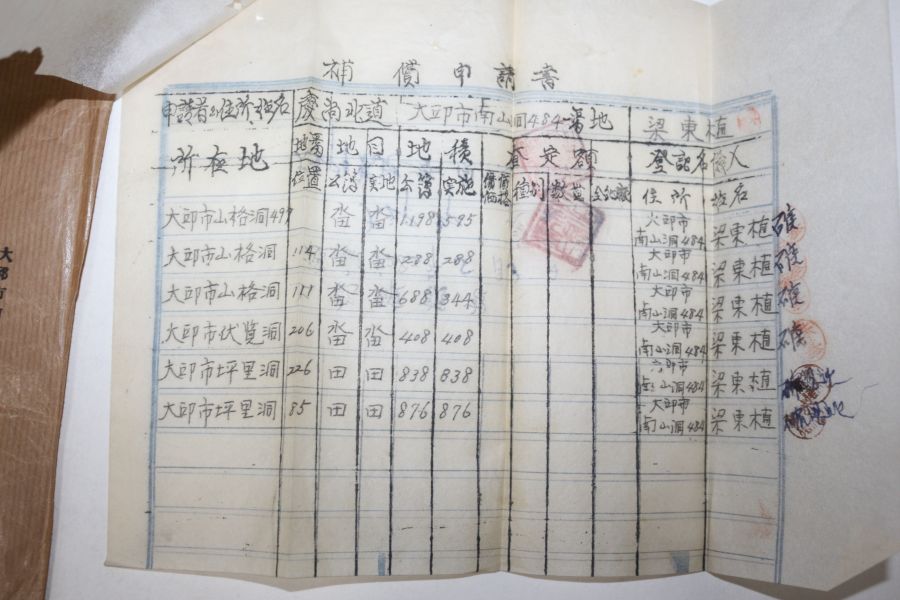 補償申請書
申請者의住所姓名 慶尚北道 大邱市南山洞484番地 梁東植
所在地 地番 地目 地積 査定額 登記名儀人
位置 公簿 実地 公簿 実施 種別 数量 住所 姓名
大邱市山格洞 497 畓 畓 1198 595 大邱市南山洞484 梁東植 確
大邱市山格洞 114 畓 畓 288 288 大邱市南山洞484 梁東植 確
大邱市山格洞 畓 畓 688 344 大邱市南山洞484 梁東植 確
大邱市伏覧洞 206 畓 畓 408 408 大邱市南山洞484 梁東植 確
大邱市坪里洞 226 田 田 838 838 大邱市南山洞484 梁東植
大邱市坪里洞 85 田 田 876 876 大邱市南山洞484 梁東植
大邱市